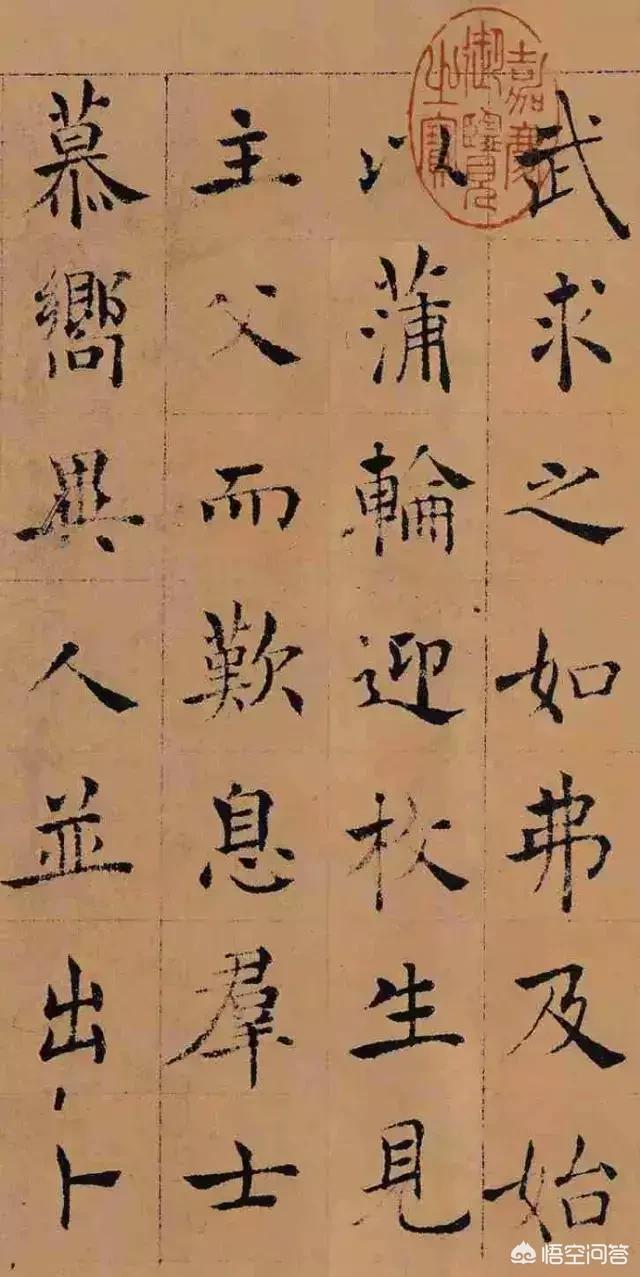 武求之如弗及始
以蒲輪迎枚生見
主父而歎息羣士
慕嚮異人並出卜
嘉慶御覽之寶
悟空问答